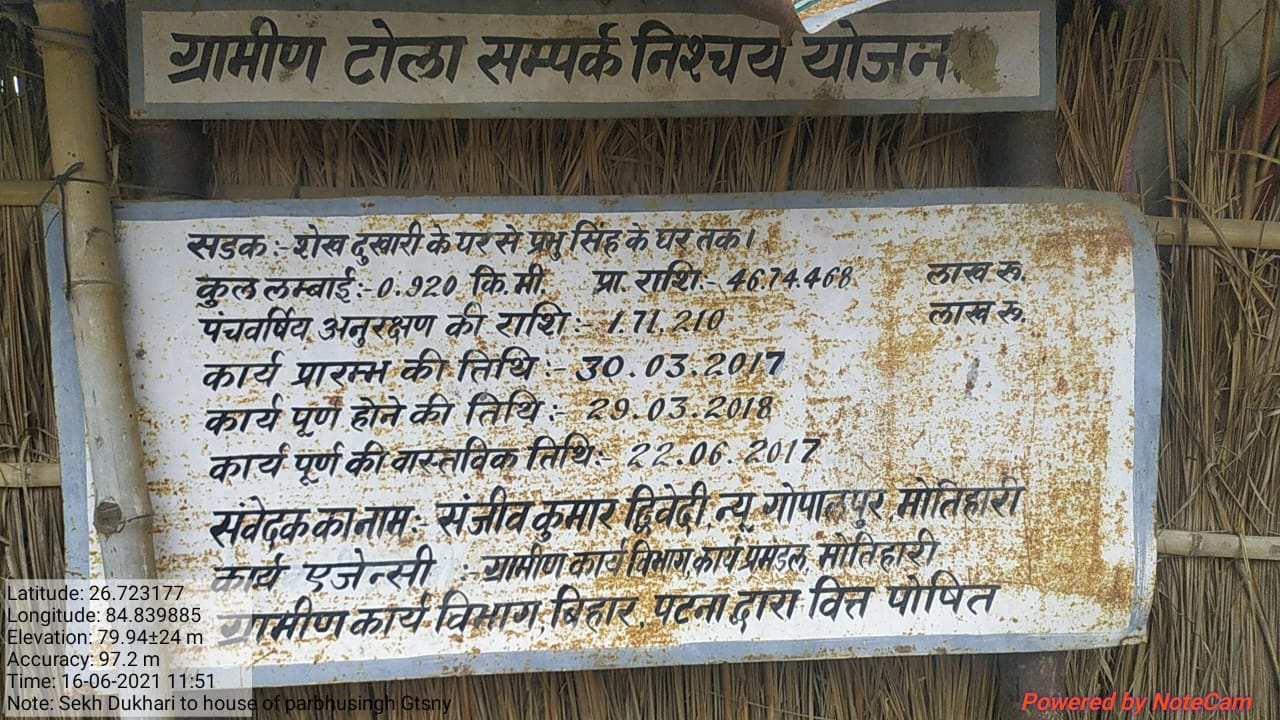 ग्रामीण टोला सम्पर्क निश्चय योजना
सडक:- शेख दुखारी के घर से प्रभु सिंह के घर तक।
कुल लम्बाई:- 0.920 कि.मी. प्रा. राशि:- 46.74.468 लाख रू.
पंचवर्षिय अनुरक्षण की राशि:- 1.71,210 लाख रू.
कार्य प्रारम्भ की तिथि:- 30.03.2017
कार्य पूर्ण होने की तिथि:- 29.03.2018
कार्य पूर्ण की वास्तविक तिथि:- 22.06.2017
संवेदक का नाम:- संजीव कुमार द्विवेदी, न्यू गोपालपुर, मोतिहारी
कार्य एजेन्सी :- ग्रामीण कार्य विभाग, कार्य प्रमंडल, मोतिहारी
ग्रामीण कार्य विभाग, बिहार, पटना द्वारा वित्त पोषित
Latitude: 26.723177
Longitude: 84.839885
Elevation: 79.94±24 m
Accuracy: 97.2 m
Time: 16-06-2021 11:51
Note: Sekh Dukhari to house of parbhusingh Gtsny
Powered by NoteCam